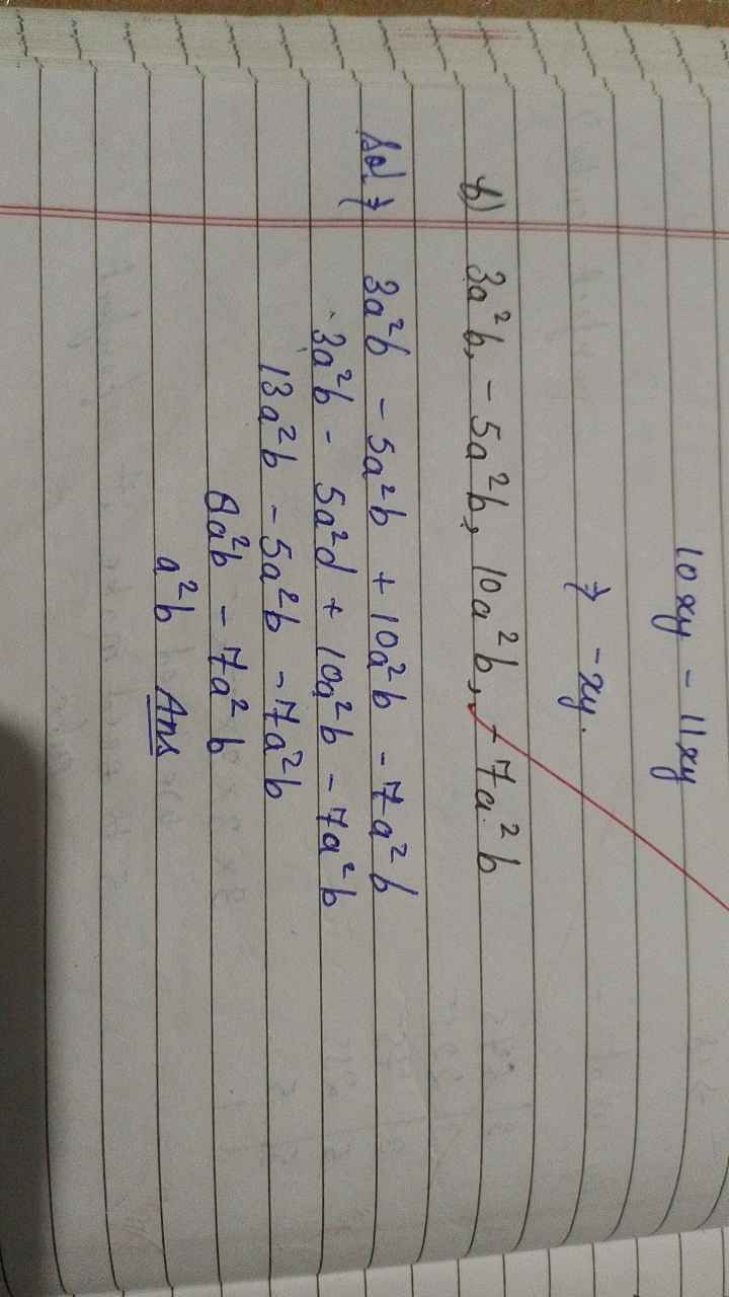 10xy - 11xy
⇒ -xy.
b) 3a²b, - 5a²b, 10a²b, - 7a²b
Sol ⇒ 3a²b - 5a²b + 10a²b - 7a²b
3a²b - 5a²d + 10a²b - 7a²b
13a²b - 5a²b - 7a²b
8a²b - 7a²b
a²b Ans